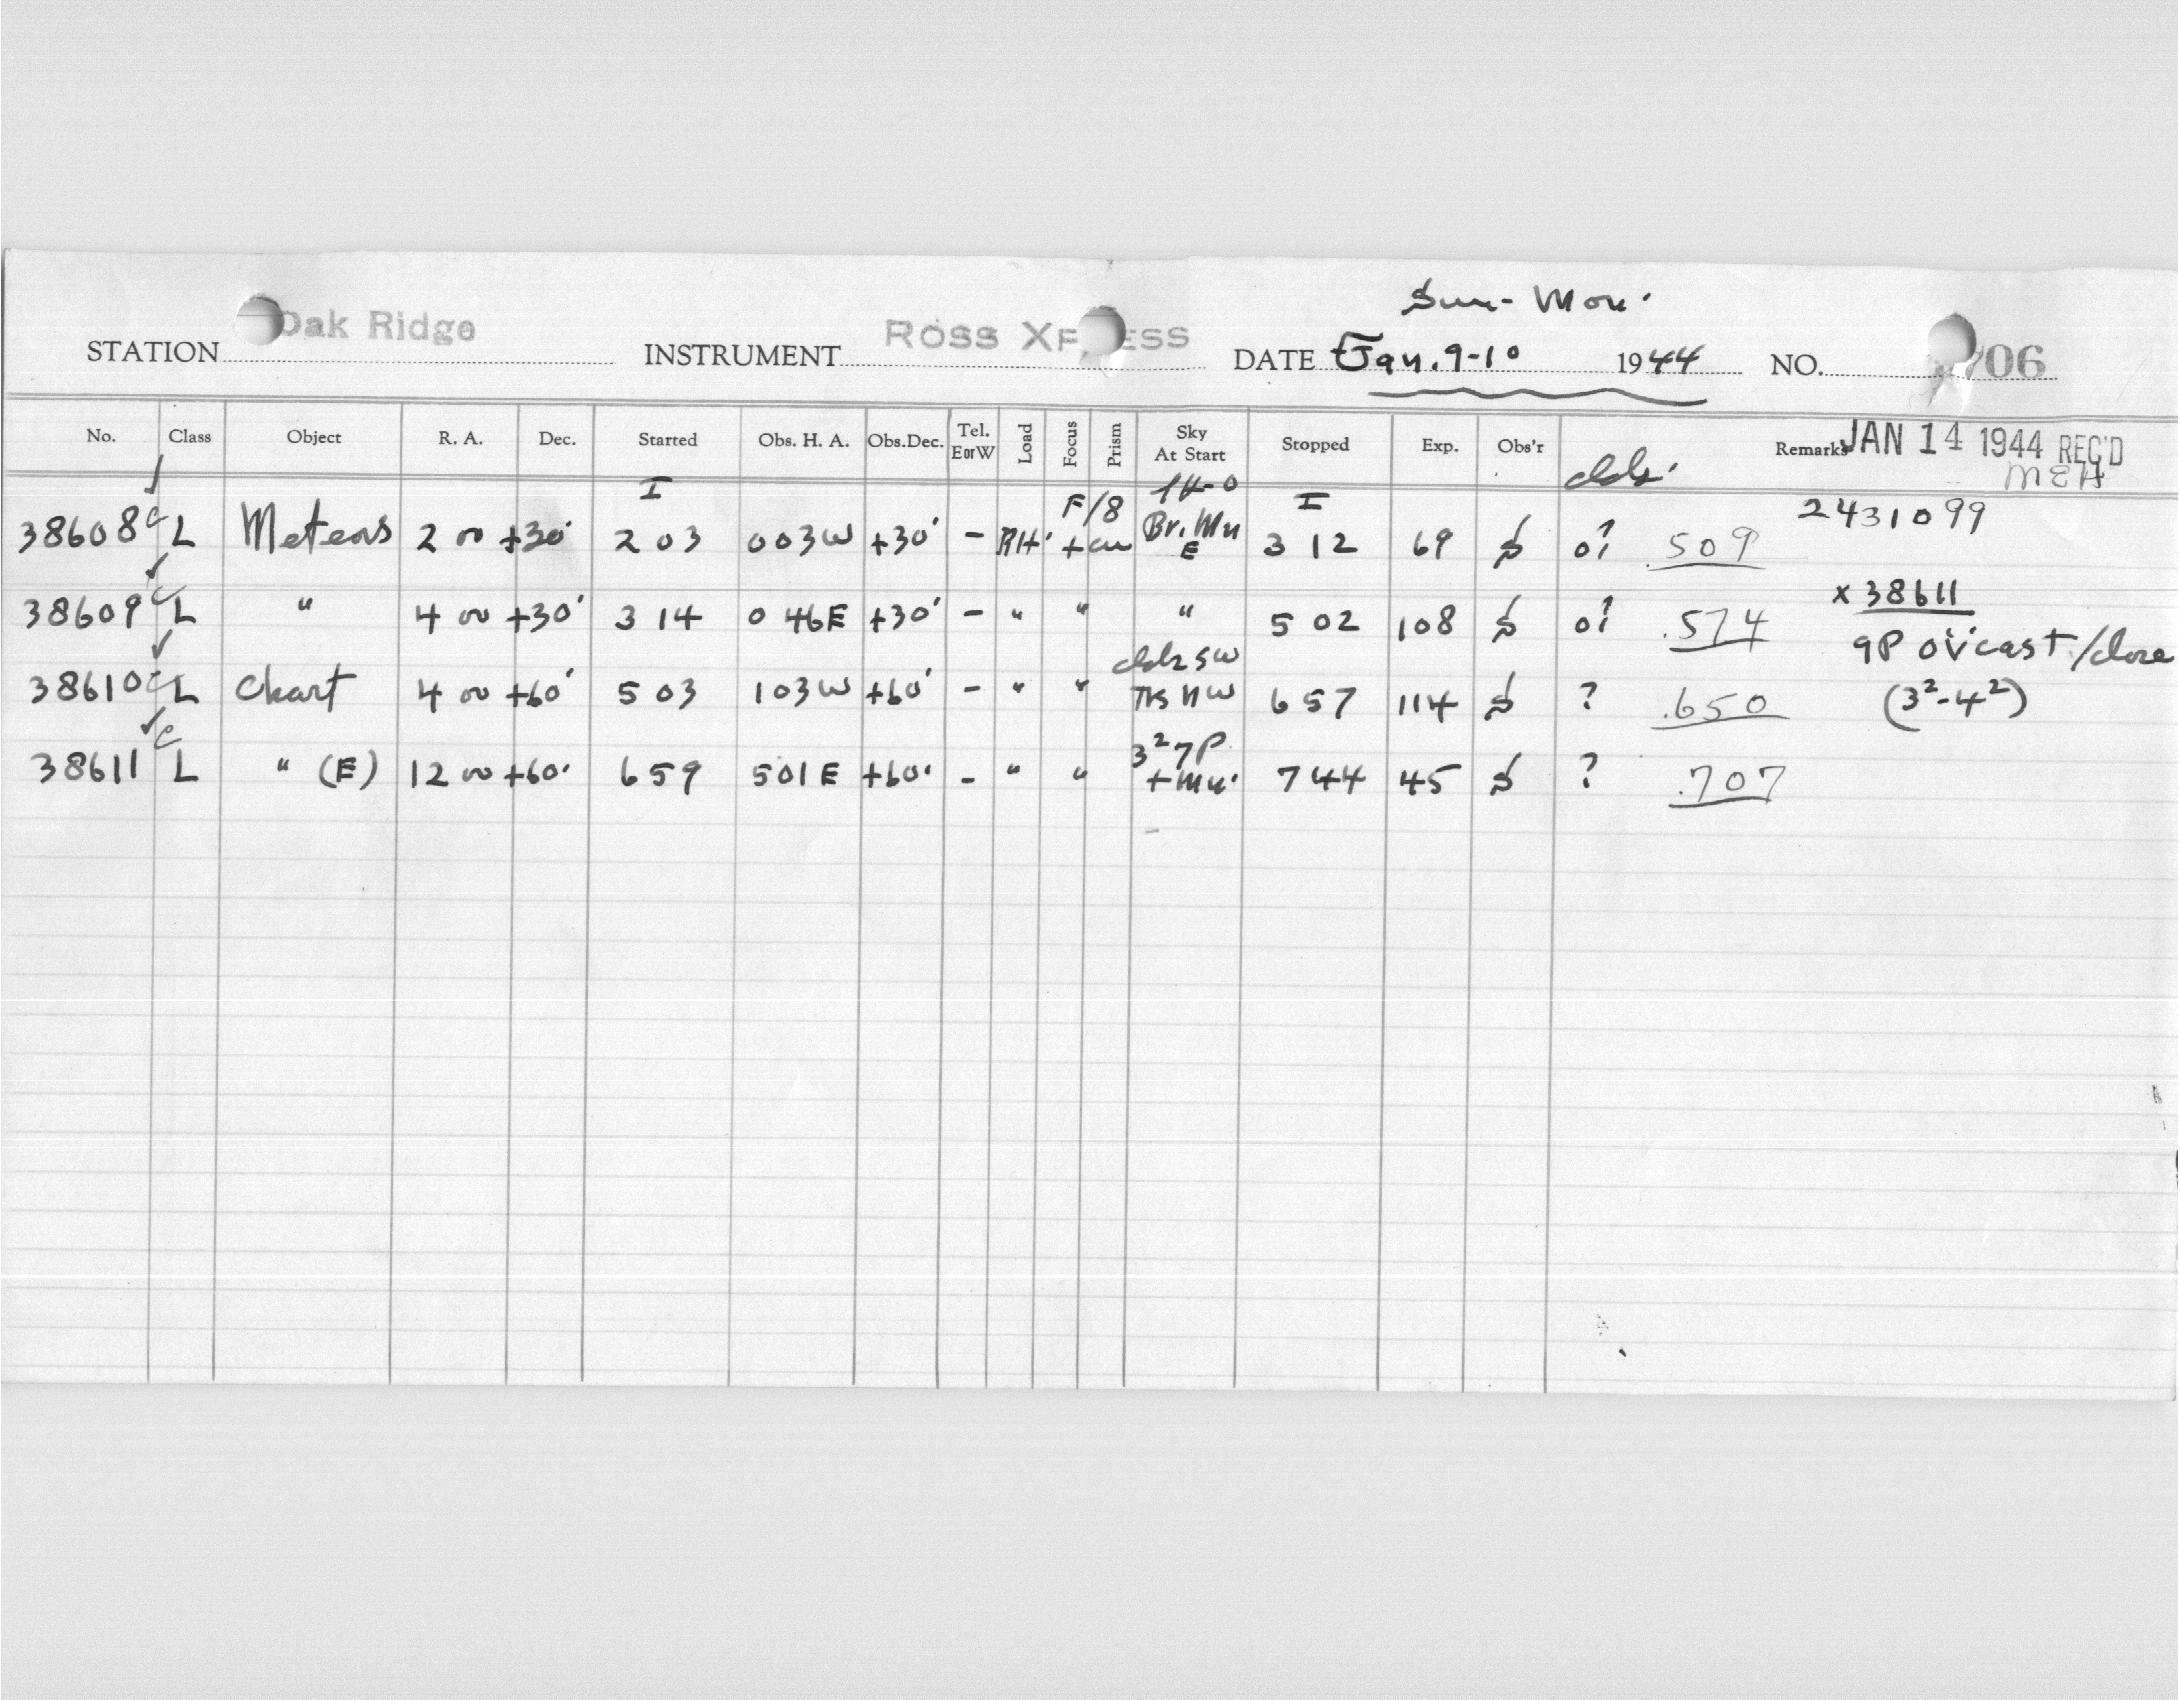 Sun - Mon.
STATION Oak Ridge INSTRUMENT ROSS DATE Jan. 9-10 1944 NO. 706
No. Class Object R. A. Dec. Started Obs. H. A. Obs.Dec. Tel. EorW Load Focus Prism Sky At Start Stopped Exp. Obs'r clds. Remarks JAN 14 1944 REC'D
MEH
I F/8 I 2431099
38608 c L Meteors 2 00 +30° 2 03 0 03W +30° - RH. Br. Mn E 3 12 69 0? .509
38609 c L " 4 00 +30° 3 14 0 46E +30° - " " " 5 02 108 0? .574 x 38611
9P ov'cast / close
38610 c L Chart 4 00 +60° 5 03 1 03W +60° - " " clds SW NW 6 57 114 ? .650 (3²-4²)
38611 c L " (E) 12 00 +60° 6 59 5 01E +60° - " " 3² 7P + Mn. 7 44 45 ? .707